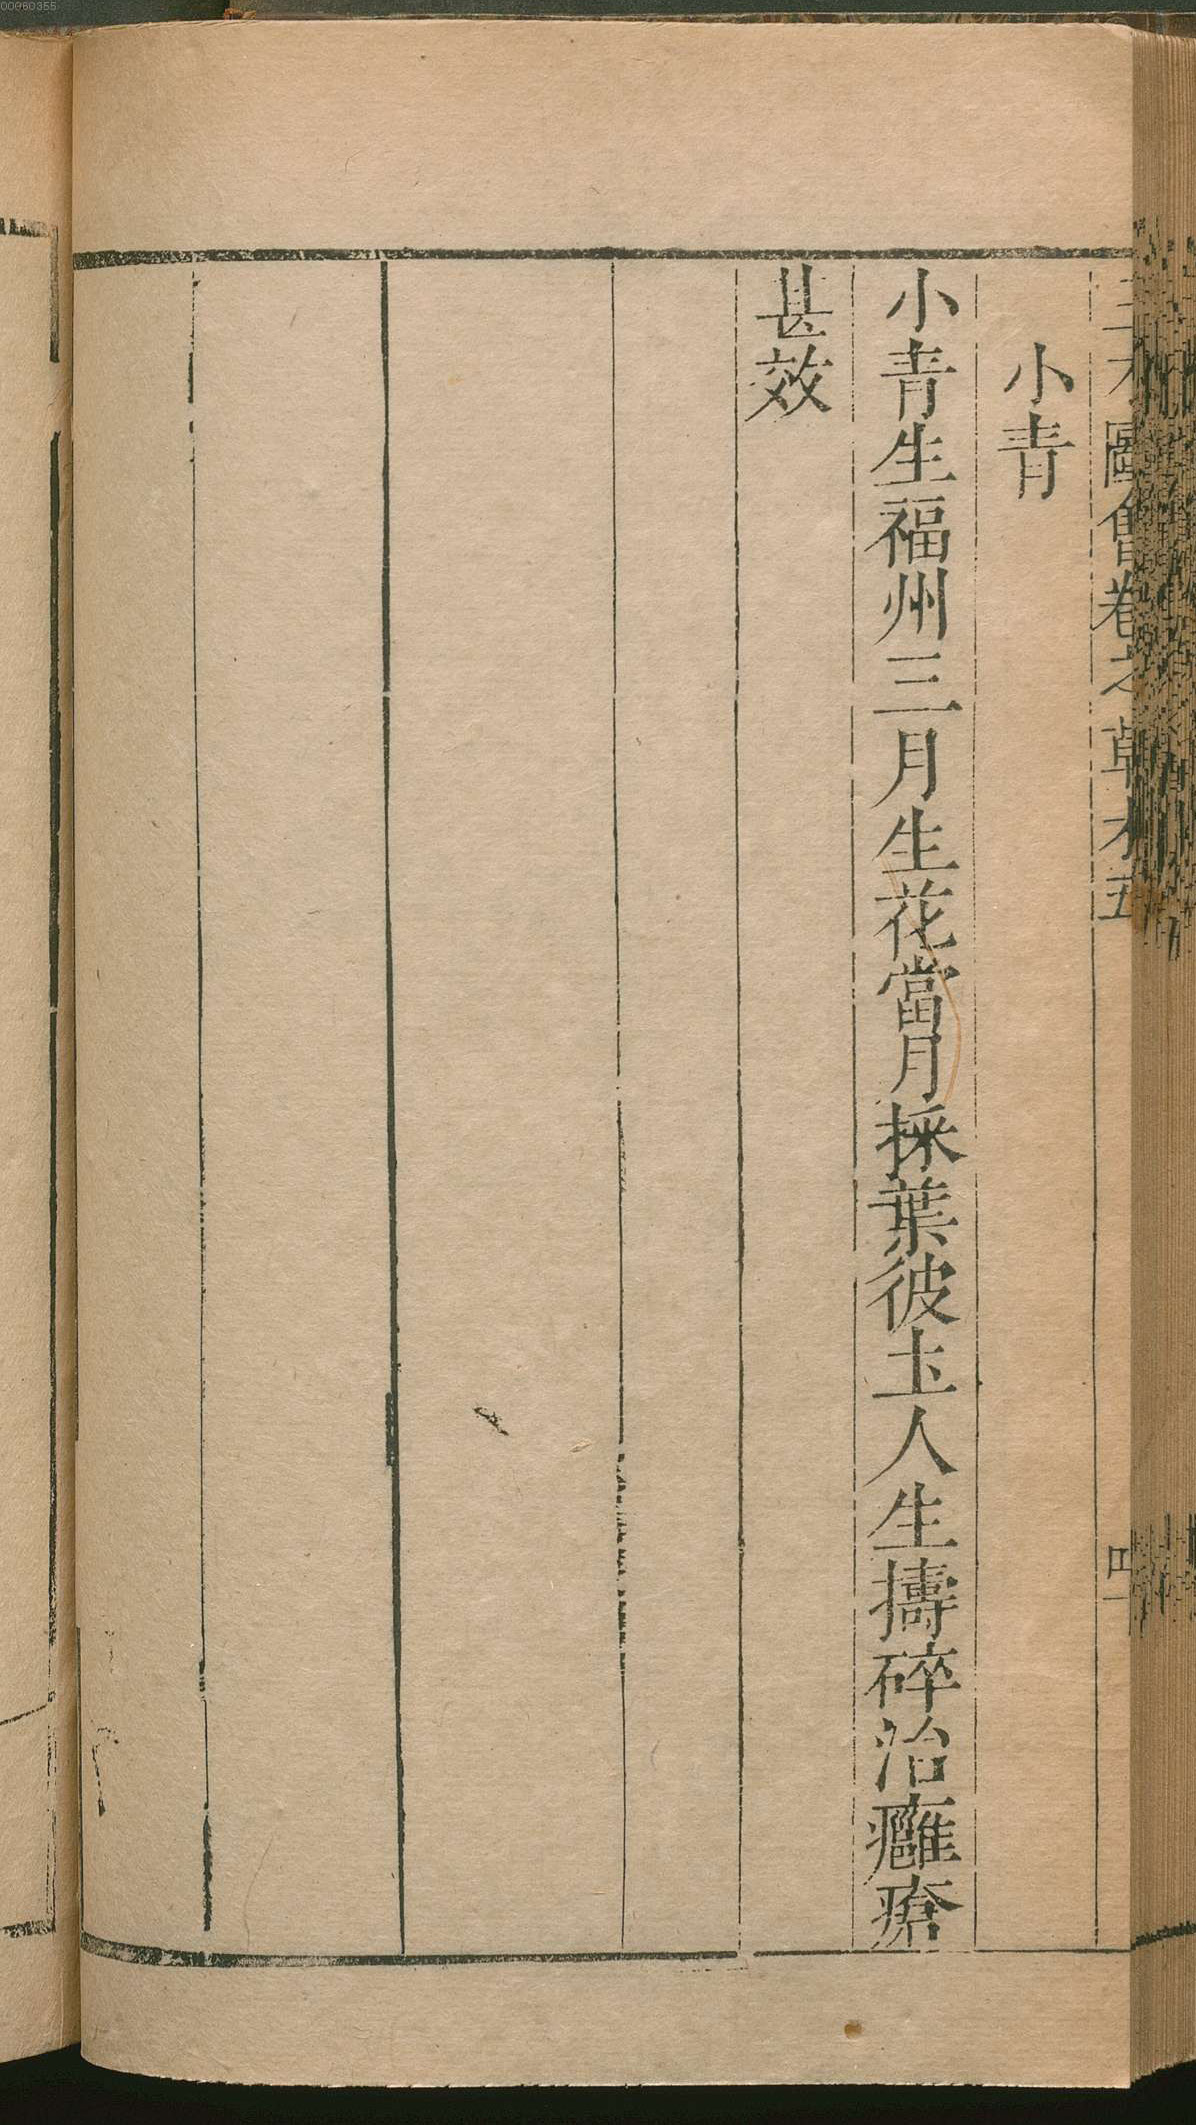 三才圖會卷之草木五
四一
小青
小青生福州三月生花當月採葉彼土人生擣碎治癰瘡
甚效
00060355